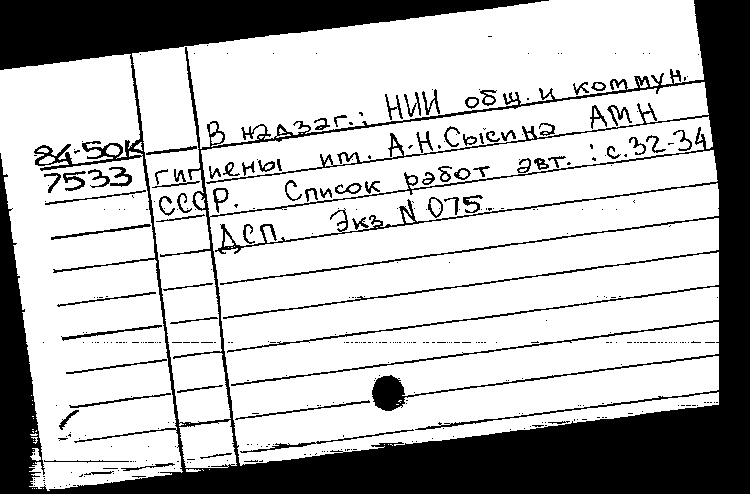 В надзаг.: НИИ общ. и коммун.
84-50К
7533 гигиены им. А.Н.Сысина АМН
СССР. Список работ авт.: с.32-34
ДСП. Экз. N 075.